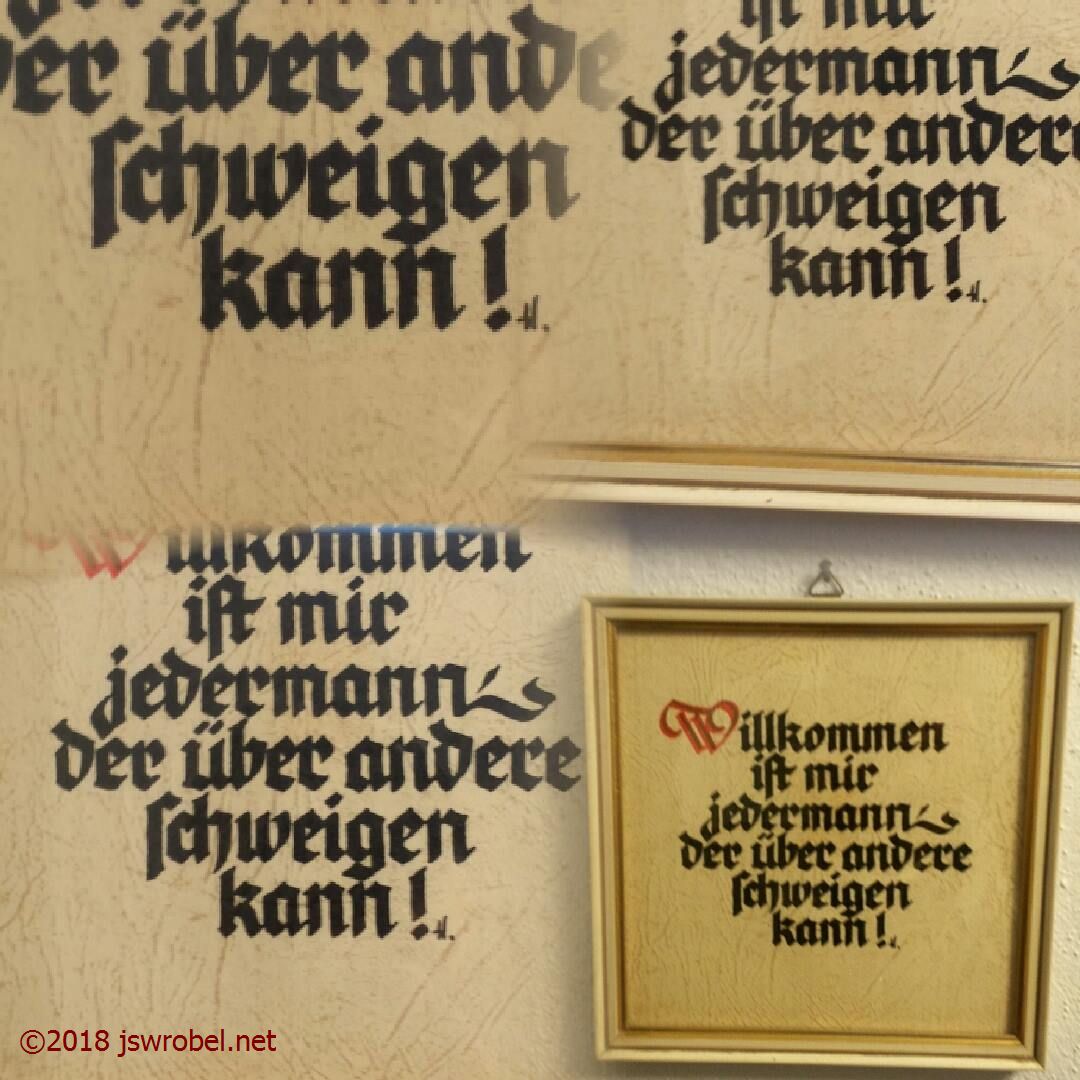 der über ande
schweigen
kann!
ist mir
jedermann
der über andere
schweigen
kann!
Willkommen
ist mir
jedermann
der über andere
schweigen
kann!
Willkommen
ist mir
jedermann
der über andere
schweigen
kann!
©2018 jswrobel.net